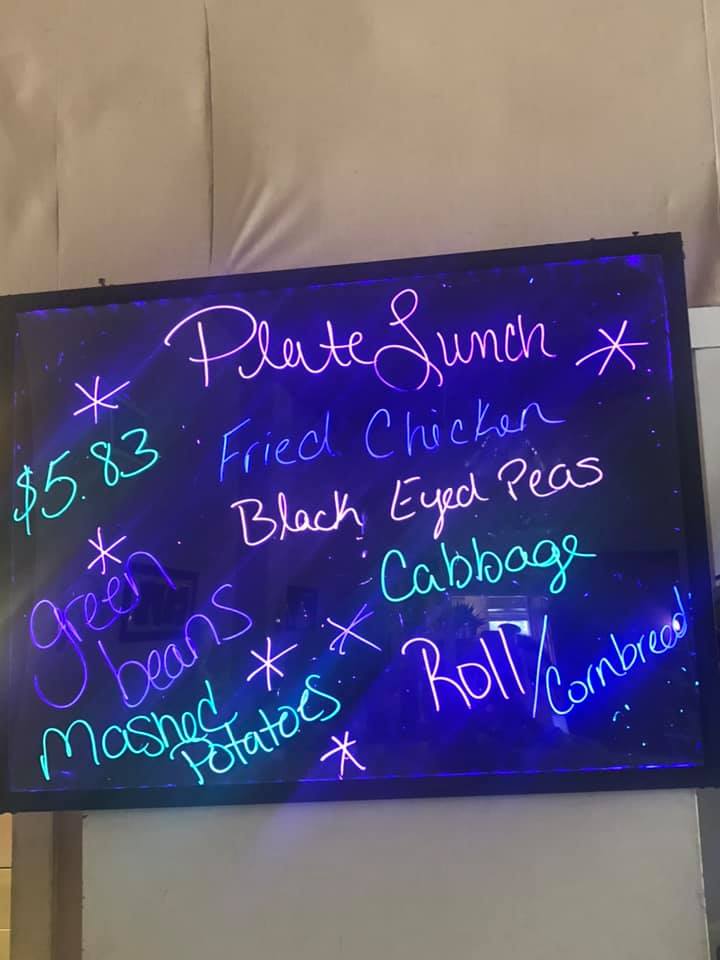 Plate Lunch
$5.83
Fried Chicken
Black Eyed Peas
Cabbage
green
beans
Roll/Cornbread
Mashed
Potatoes